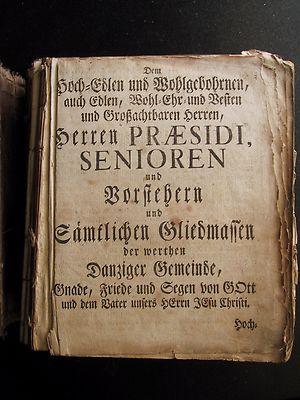 Dem
Hoch-Edlen und Wohlgebohrnen,
auch Edlen, Wohl-Ehr-und Vesten
und Großachtbaren Herren,
Herren PRÆSIDI,
SENIOREN
und
Vorstehern
und
Sämtlichen Gliedmassen
der werthen
Danziger Gemeinde,
Gnade, Friede und Segen von GOtt
und dem Vater unsers HErrn JEsu Christi.
Hoch-